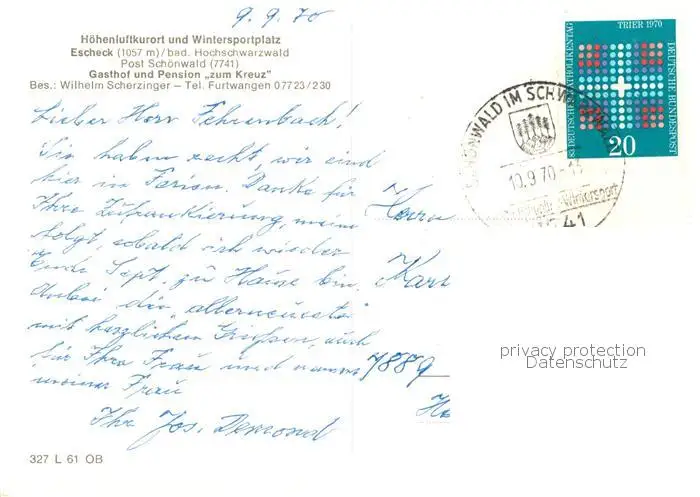 9.9.70
Höhenluftkurort und Wintersportplatz
Escheck (1057 m)/bad. Hochschwarzwald
Post Schönwald (7741)
Gasthof und Pension „zum Kreuz"
Bes.: Wilhelm Scherzinger – Tel. Furtwangen 07723/230
Lieber Herr Fehrenbach!
Sie haben recht, wir sind
hier in Ferien. Danke für
Ihre Zufrankierung, meine
folgt, sobald ich wieder
Ende Sept. zu Hause bin.
Anbei die „allerneueste"
mit herzlichen Grüßen, auch
für Ihre Frau und
meiner Frau
Ihr Jos.
327 L 61 OB
83. DEUTSCHER KATHOLIKENTAG
TRIER 1970
DEUTSCHE BUNDESPOST
20
SCHÖNWALD IM SCHWARZWALD
10.9.70
Wintersport
41
Herrn
Karl
7889
privacy protection
Datenschutz